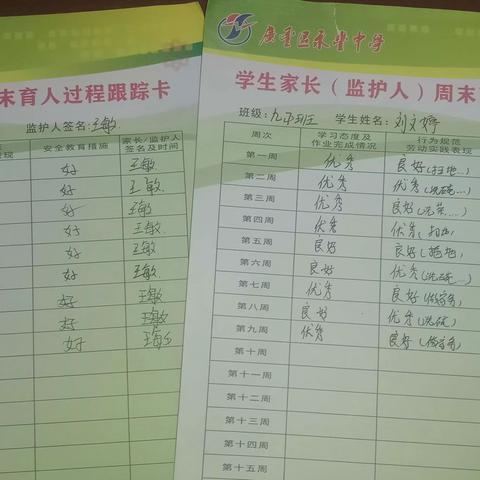 末育人过程跟踪卡
监护人签名:王敏
表现 安全教育措施 家长/监护人签名及时间
好 王敏
好 王敏
好 王敏
好 王敏
好 王敏
好 王敏
好 王敏
好 王敏
好 王敏
学生家长(监护人)周末
班级: 学生姓名:刘文婷
周次 学习态度及作业完成情况 行为规范劳动实践表现
第一周 优秀 良好(扫地)
第二周 优秀 优秀(洗碗...)
第三周 优秀 良好(洗菜....)
第四周 优秀 优秀(扫地)
第五周 良好 良好(拖地)
第六周 良好 优秀(洗碗...)
第七周 优秀 良好(做家务)
第八周 良好 优秀(洗碗)
第九周 优秀 良好(做家务)
第十周
第十一周
第十二周
第十三周
第十四周
第十五周